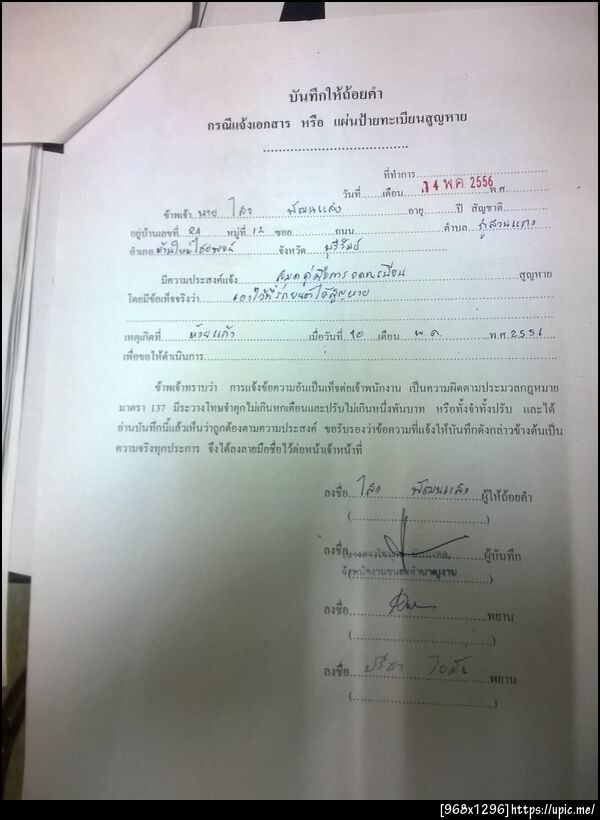 บันทึกให้ถ้อยคำ
กรณีแจ้งเอกสาร หรือ แผ่นป้ายทะเบียนสูญหาย
ที่ทำการ
วันที่ เดือน 14 พ.ค. 2556 พ.ศ.
ข้าพเจ้า นาย ไสว พัฒนแสง อายุ ปี สัญชาติ
อยู่บ้านเลขที่ หมู่ที่ 12 ซอย ถนน ตำบล กู่สวนแตง
อำเภอ บ้านใหม่ไชยพจน์ จังหวัด บุรีรัมย์
มีความประสงค์แจ้ง สมุดคู่มือการจดทะเบียน สูญหาย
โดยมีข้อเท็จจริงว่า เอาไว้ที่รถยนต์ได้สูญหาย
เหตุเกิดที่ ห้วยแก้ว เมื่อวันที่ 10 เดือน พ.ค. พ.ศ. 2556
เพื่อขอให้ดำเนินการ
ข้าพเจ้าทราบว่า การแจ้งข้อความอันเป็นเท็จต่อเจ้าพนักงาน เป็นความผิดตามประมวลกฎหมาย
มาตรา 137 มีระวางโทษจำคุกไม่เกินหกเดือนและปรับไม่เกินหนึ่งพันบาท หรือทั้งจำทั้งปรับ และได้
อ่านบันทึกนี้แล้วเห็นว่าถูกต้องตามความประสงค์ ขอรับรองว่าข้อความที่แจ้งให้บันทึกดังกล่าวข้างต้นเป็น
ความจริงทุกประการ จึงได้ลงลายมือชื่อไว้ต่อหน้าเจ้าหน้าที่
ลงชื่อ ไสว พัฒนแสง ผู้ให้ถ้อยคำ
(
)
ลงชื่อ ผู้บันทึก
เจ้าพนักงานขนส่งชำนาญงาน
ลงชื่อ พยาน
(
)
ลงชื่อ ปรีชา พยาน
(
)
[968x1296]https://upic.me/